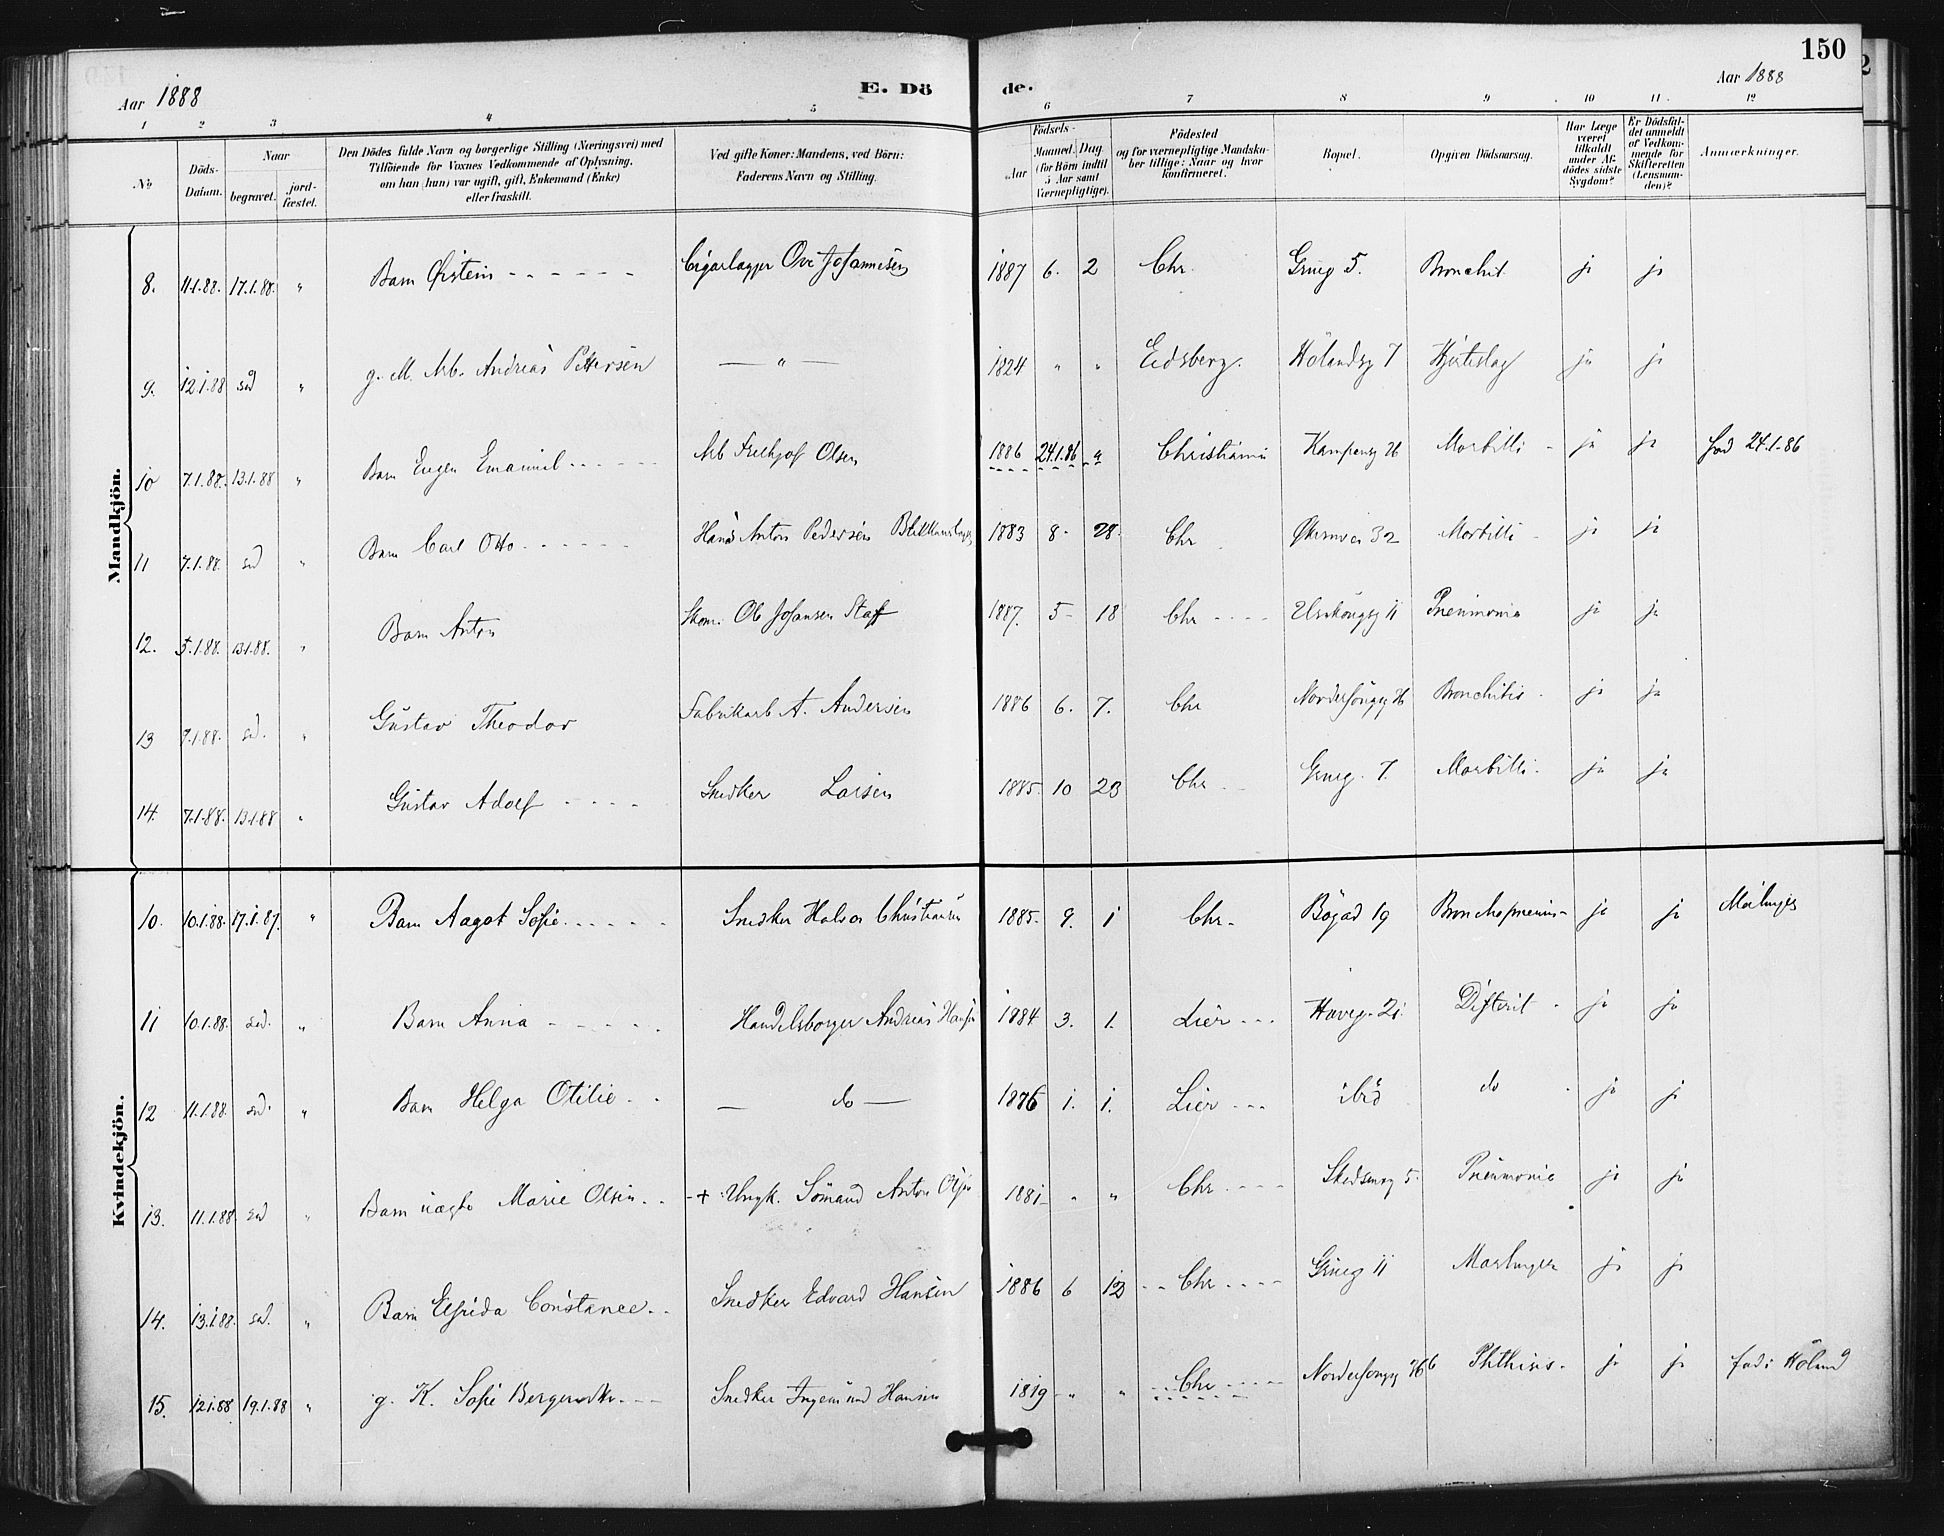 150
Aar 1888 E. Dö de. Aar 1888
1 2 3 4 5 6 7 8 9 10 11 12
No
Döds-Datum.
Naar
begravet.
jord-fæstet.
Den Dödes fulde Navn og borgerlige Stilling (Næringsvei) med
Tilföiende for Voxnes Vedkommende af Oplysning,
om han (hun) var ugift, gift, Enkemand (Enke)
eller fraskilt.
Ved gifte Koner: Mandens, ved Börn:
Faderens Navn og Stilling.
Födsels-
Aar
Maaned. Dag
(for Börn indtil
5 Aar samt
Værnepligtige).
Födested
og for værnepligtige Mandska-
ber tillige: Naar og hvor
konfirmeret.
Bopæl.
Opgiven Dödsaarsag.
Har Læge
været
tilkaldt
under Af-
dödes sidste
Sygdom?
Er Dödsfal-
det anmeldt
af Vedkom-
mende for
Skifteretten
(Lensman-
den)?
Anmærkninger.
Mandkjön.
8. 11.1.88. 17.1.88. " Barn Øistein Ove Johannesen 1887 6. 2 Chr. Grueg 5. Bronchit ja ja
9. 12.1.88 sad " g. M. Arb. Andreas Pettersen — " — 1824 " " Eidsberg. Hölandsg 7 Hjerteslag ja ja
10 7.1.88. 13.1.88 " Barn Eugen Emanuel Arb Olsen 1886 24.1.86 " Christiania Kampensg Morbilli ja ja fød 24.1-86
11 7.1.88. sad " Barn Carl Otto Hans Anton Pedersen 1883 8. 28. Chr. Økernvei 32 Morbilli ja ja
12. 5.1.88. 13.1.88. " Barn Anton Skom. Ole Johansen Staff 1887. 5 18 Chr 11 Pneumonia ja ja
13 sad. " Gustav Theodor Fabrikarb A. Andersen 1886 6. 7. Chr Bronchitis ja ja
14. 7.1.88. 13.1.88 " Gustav Adolf Snedker Larsen 1885. 10 23 Chr Grueg. 7. Morbilli. ja ja
Kvindekjön.
10. 10.1.88. 17.1.87. " Barn Aagot Sofie Snedker Halvor Christiansen 1885. 9. 1 Chr. Bögad 19 ja ja
11 10.1.88. sad. " Barn Anna Handelsborger Andreas Hansen 1884 3. 1. Lier Haveg. 21. Difterit ja ja
12 11.1.88. sad. " Barn Helga Otilie — do — 1876 1. 1. Lier ibid do ja ja
13. 11.1.88 sad " Barn uægte Marie Olsen + Ungk. Sömand Anton Olsen 1881 " " Chr Skedsmog 5. Pneumonia ja ja
14. 13.1.88. sad. " Barn Elfrida Constance Snedker Edvard Hansen 1886 6 13 Chr Grueg 11 Mæslinger ja ja
15. 12.1.88 19.1.88 " g. K. Sofie Snedker Ingemund Hansen 1819 " " Chr Phthisis. ja ja fød i Höland